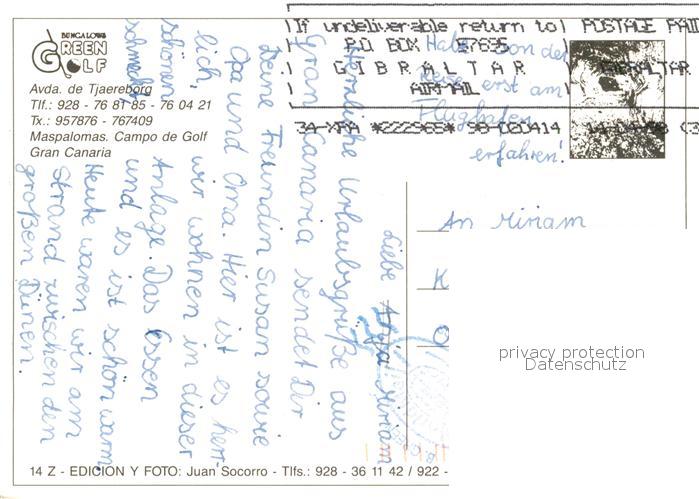 BUNGALOWS
GREEN
GOLF
Avda. de Tjaereborg
Tlf.: 928 - 76 81 85 - 76 04 21
Tx.: 957876 - 767409
Maspalomas. Campo de Golf
Gran Canaria
If undeliverable return to
P.O BOX 57635
GIBRALTAR
AIRMAIL
POSTAGE PAID
GIBRALTAR
34-XRA *222965* 98-020414
Liebe Miriam
Herzliche Urlaubsgrüße aus
Gran Canaria sendet Dir
Deine Freundin Susan sowie
Opa und Oma. Hier ist es herr-
lich, wir wohnen in dieser
schönen Anlage. Das Essen
schmeckt und es ist schön warm.
Heute waren wir am
Strand zwischen den
großen Dünen.
Habe von der
Reise erst am
Flughafen
erfahren!
An Miriam
K
O
privacy protection
Datenschutz
14 Z - EDICION Y FOTO: Juan Socorro - Tlfs.: 928 - 36 11 42 / 922 -